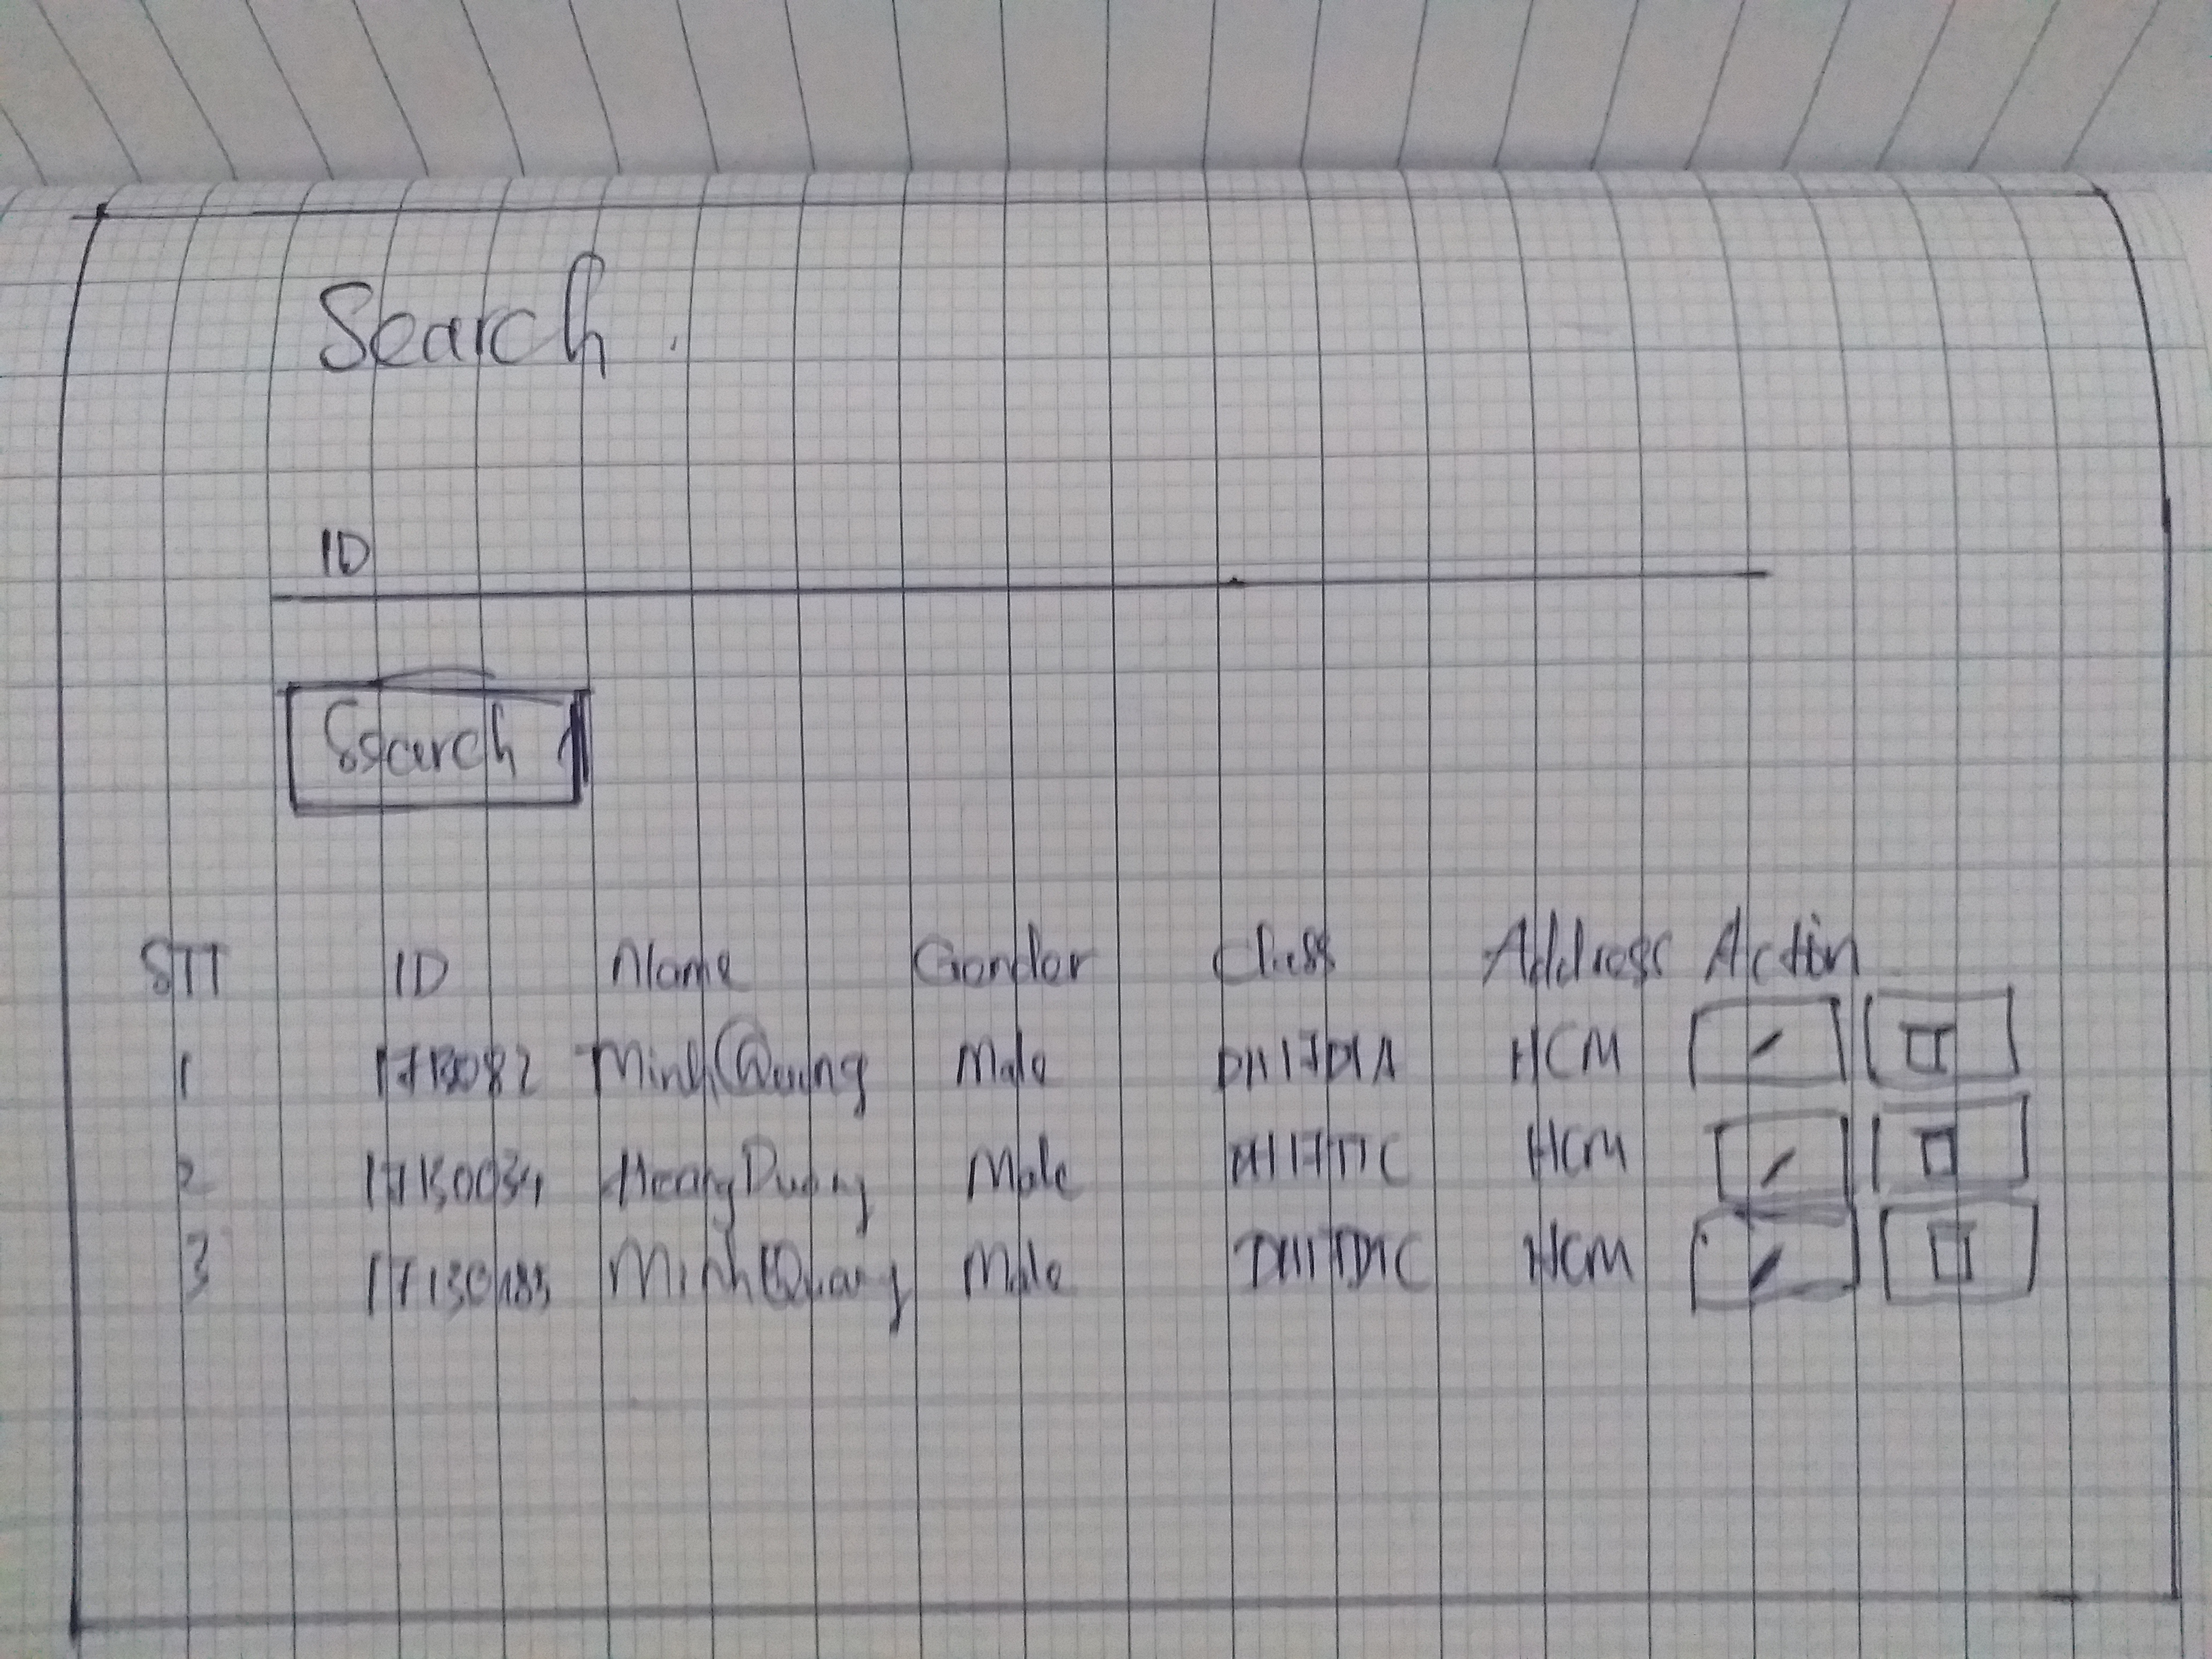 Search
ID
Search
STT ID Name Gender Class Address Action
1 17130082 Minh Quang Male DH17DTA HCM
2 17130034 Hoang Duong Male DH17DTC HCM
3 17130183 Minh Quang Male DH17DTC HCM